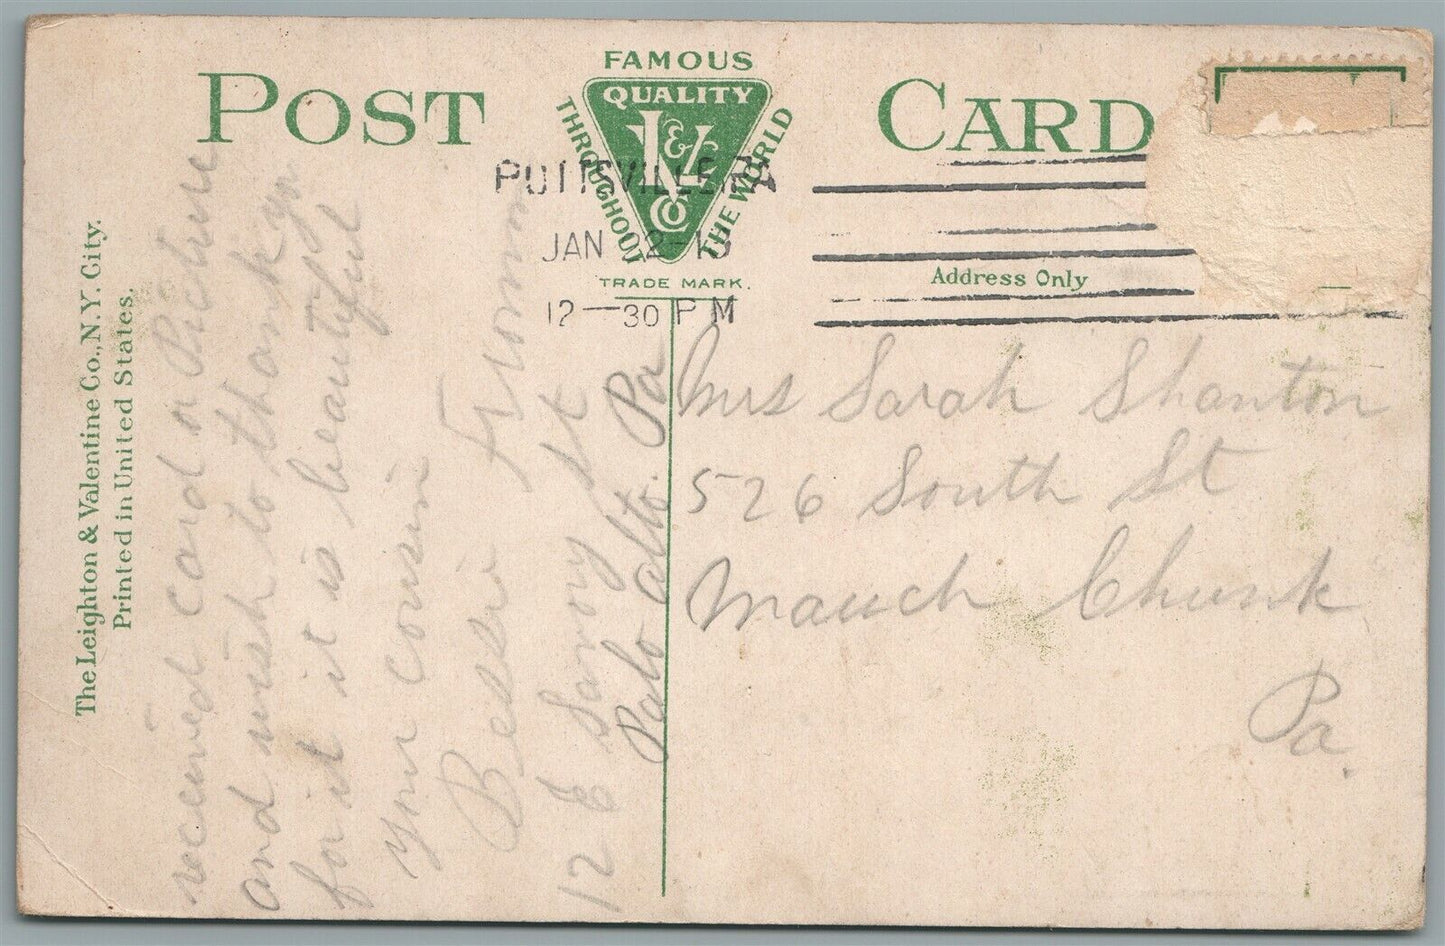 POST CARD
FAMOUS
QUALITY
THROUGHOUT
THE WORLD
L & V
CO
TRADE MARK.
POTTSVILLE PA
JAN 2
12-30 PM
Address Only
The Leighton & Valentine Co., N.Y. City.
Printed in United States.
received card or Picture
and wish to thank yo
for it it is beautiful
your cousin
Bessie Fromm
12 E Savory St
Palo Alto. Pa
Mrs Sarah Shanton
526 South St
Mauch Chunk
Pa.